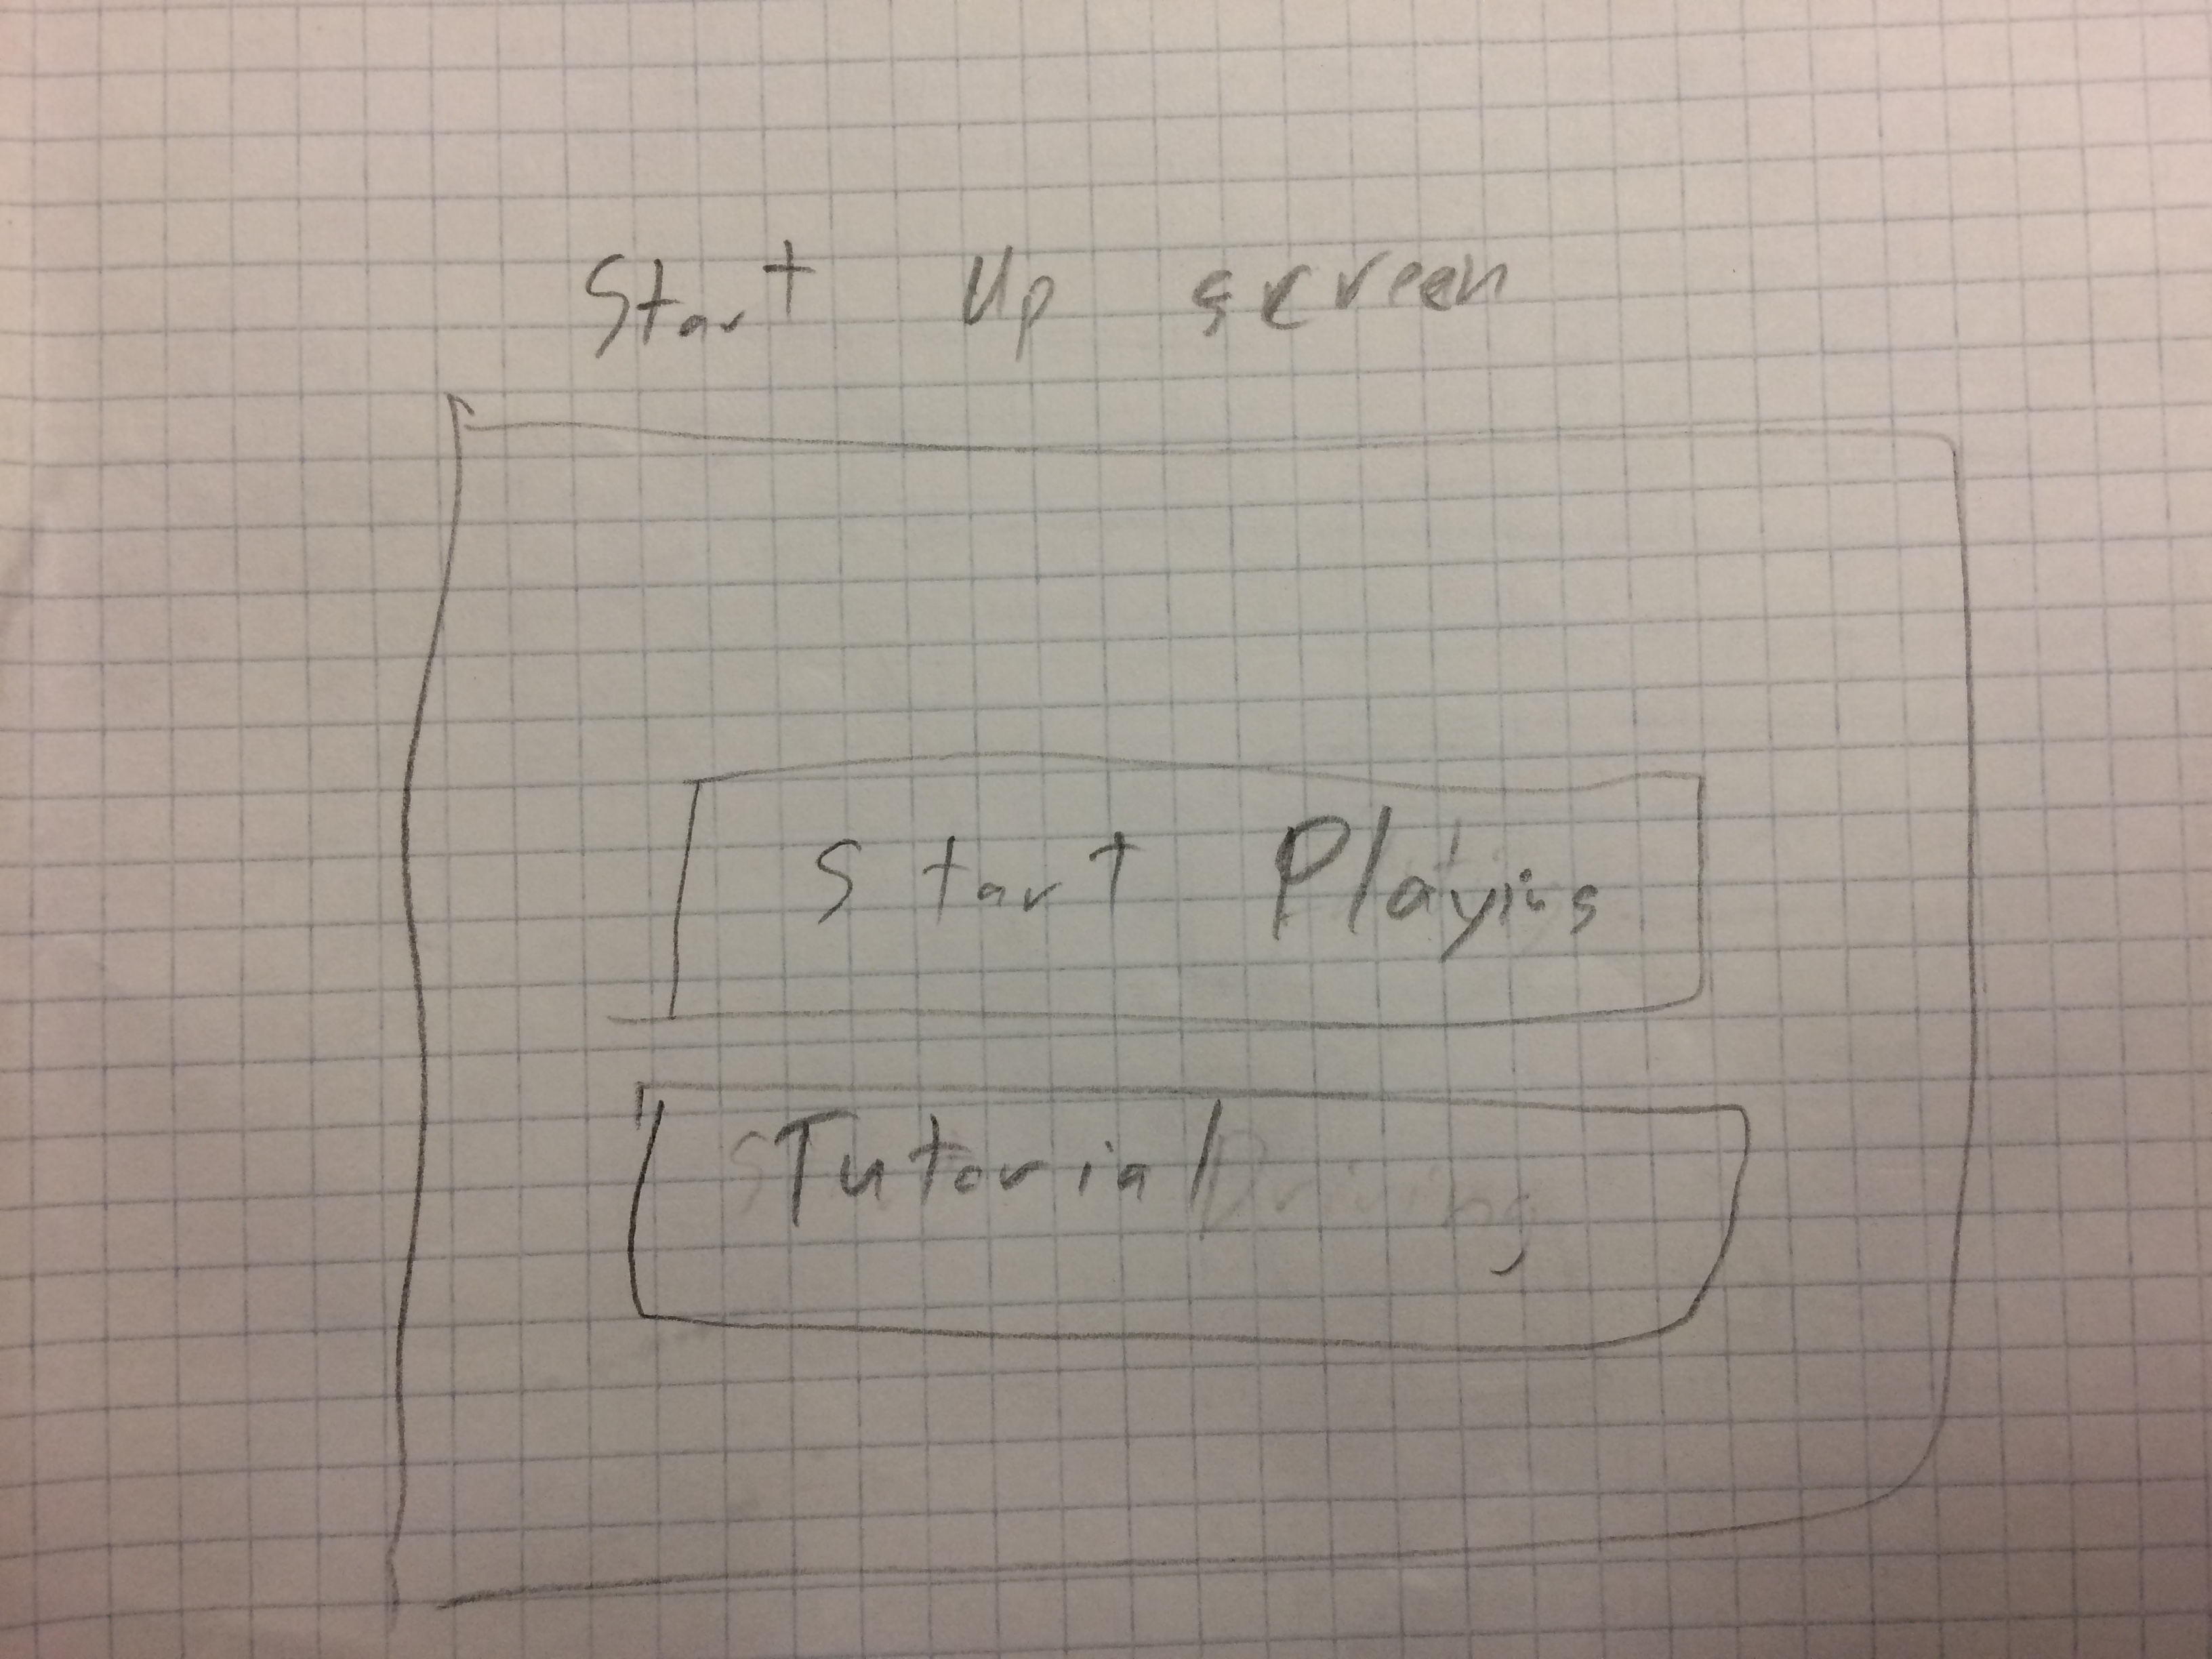 Start Up screen
Start Playing
Tutorial